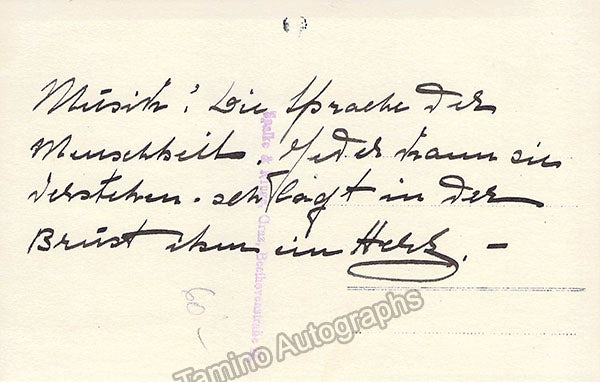 Musik! Die Sprache der
Menschheit. Jeder kann sie
verstehen. schlägt in der
Brust ihm ein Herz. –
60.-
Cruz, Beethovenstraße
Tamino Autographs